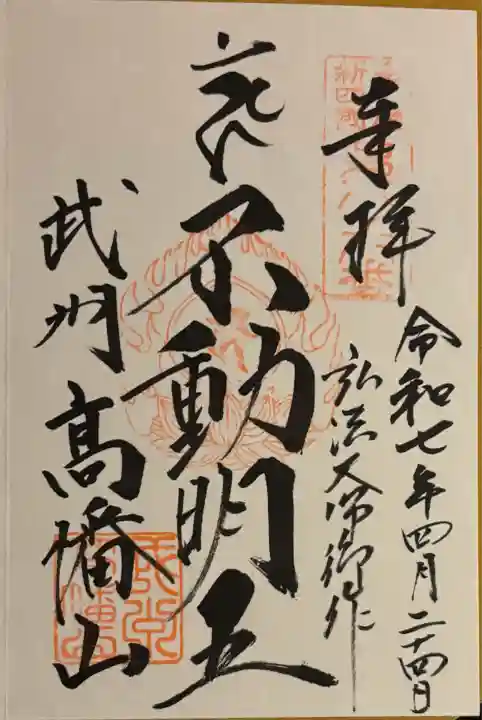 奉拝
令和七年四月二十四日
弘法大師御作
不動明王
武州 高幡山